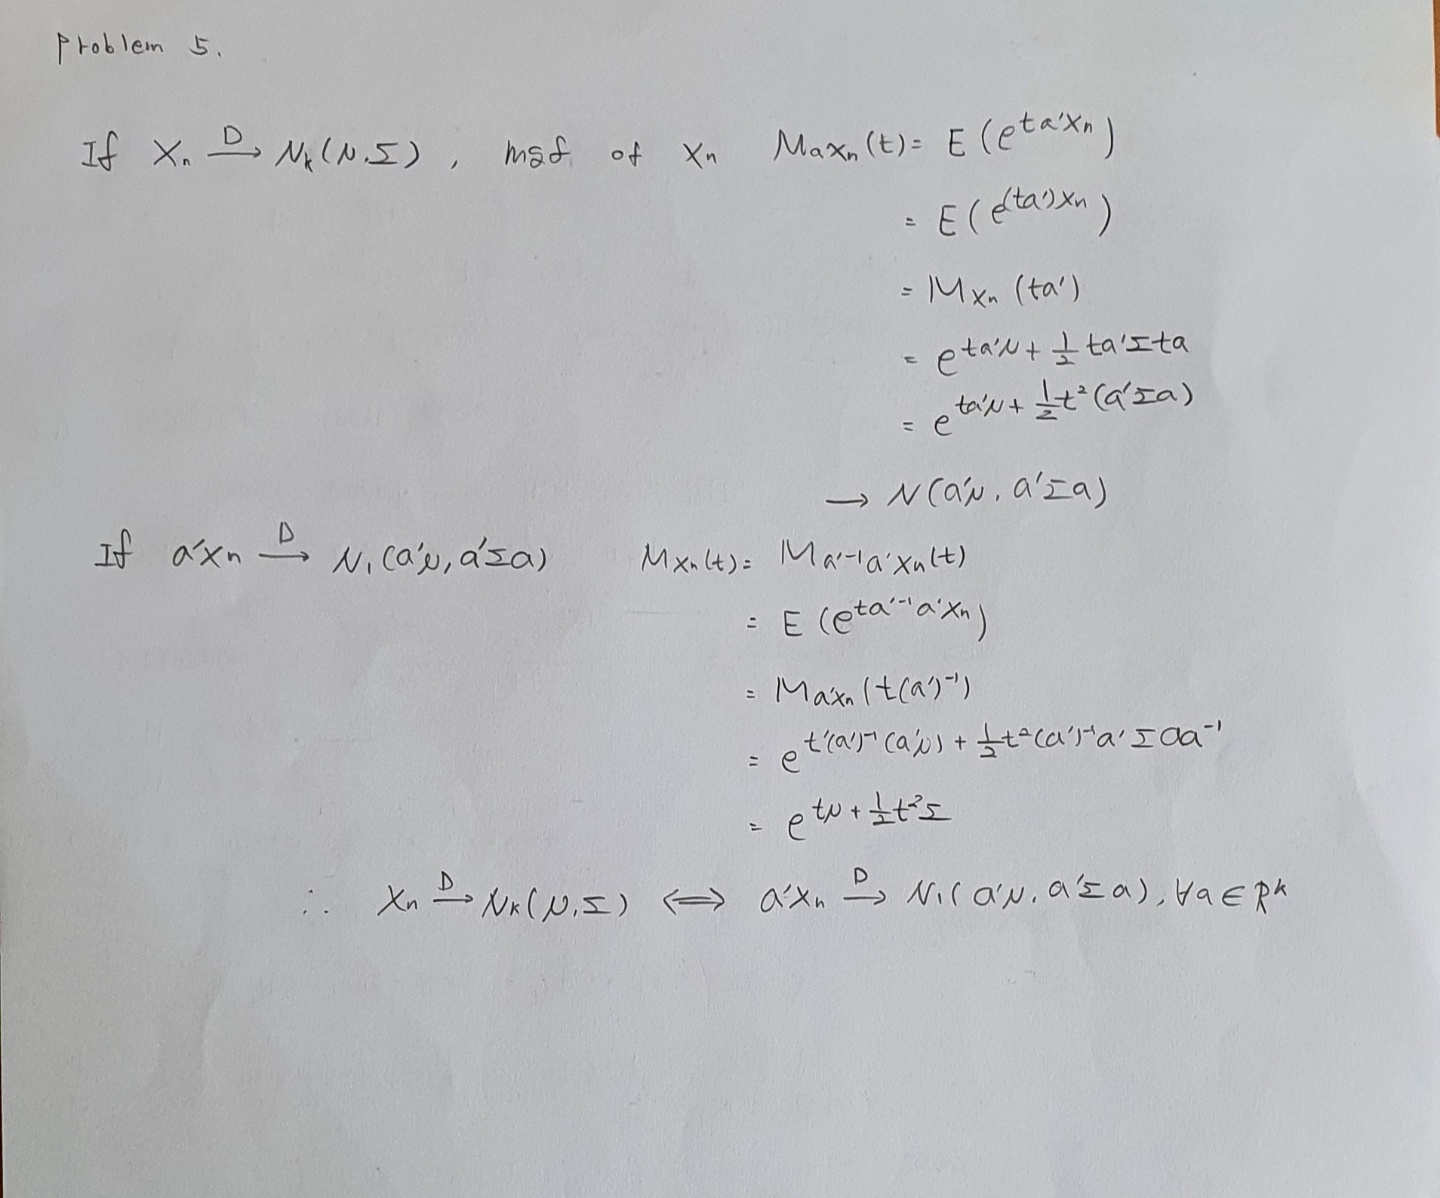 Problem 5.
If Xₙ →ᴰ Nₖ(μ, Σ), mgf. of Xₙ Maxₙ(t) = E(e^{ta'Xₙ})
= E(e^{(ta')Xₙ})
= M_{Xₙ}(ta')
= e^{ta'μ + ½ ta'Σta}
= e^{ta'μ + ½t²(a'Σa)}
→ N(a'μ, a'Σa)
If a'Xₙ →ᴰ N₁(a'μ, a'Σa) M_{Xₙ}(t) = M_{a'⁻¹a'Xₙ}(t)
= E(e^{ta'⁻¹a'Xₙ})
= M_{a'Xₙ}(t(a')⁻¹)
= e^{t'(a')⁻¹(a'μ) + ½t²(a')⁻¹a'Σaa⁻¹}
= e^{tμ + ½t²Σ}
∴ Xₙ →ᴰ Nₖ(μ, Σ) ⟺ a'Xₙ →ᴰ N₁(a'μ, a'Σa), ∀a ∈ Rᵏ